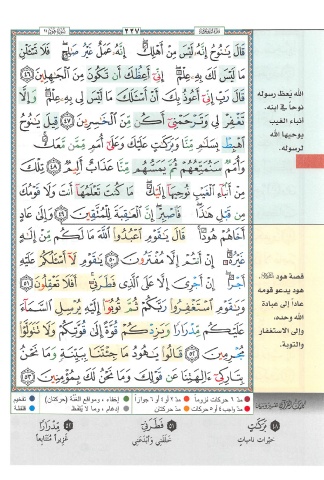 سُورَةُ هُودٍ ١١
٢٢٧
قَالَ يَٰنُوحُ إِنَّهُۥ لَيْسَ مِنْ أَهْلِكَ ۖ إِنَّهُۥ عَمَلٌ غَيْرُ صَٰلِحٍ ۖ فَلَا تَسْـَٔلْنِ
مَا لَيْسَ لَكَ بِهِۦ عِلْمٌ ۖ إِنِّىٓ أَعِظُكَ أَن تَكُونَ مِنَ ٱلْجَٰهِلِينَ ٤٦
قَالَ رَبِّ إِنِّىٓ أَعُوذُ بِكَ أَنْ أَسْـَٔلَكَ مَا لَيْسَ لِى بِهِۦ عِلْمٌ ۖ وَإِلَّا
تَغْفِرْ لِى وَتَرْحَمْنِىٓ أَكُن مِّنَ ٱلْخَٰسِرِينَ ٤٧ قِيلَ يَٰنُوحُ
ٱهْبِطْ بِسَلَٰمٍ مِّنَّا وَبَرَكَٰتٍ عَلَيْكَ وَعَلَىٰٓ أُمَمٍ مِّمَّن مَّعَكَ ۚ
وَأُمَمٌ سَنُمَتِّعُهُمْ ثُمَّ يَمَسُّهُم مِّنَّا عَذَابٌ أَلِيمٌ ٤٨ تِلْكَ
مِنْ أَنۢبَآءِ ٱلْغَيْبِ نُوحِيهَآ إِلَيْكَ ۖ مَا كُنتَ تَعْلَمُهَآ أَنتَ وَلَا قَوْمُكَ
مِن قَبْلِ هَٰذَا ۖ فَٱصْبِرْ ۖ إِنَّ ٱلْعَٰقِبَةَ لِلْمُتَّقِينَ ٤٩ وَإِلَىٰ عَادٍ
أَخَاهُمْ هُودًا ۚ قَالَ يَٰقَوْمِ ٱعْبُدُوا۟ ٱللَّهَ مَا لَكُم مِّنْ إِلَٰهٍ
غَيْرُهُۥٓ ۖ إِنْ أَنتُمْ إِلَّا مُفْتَرُونَ ٥٠ يَٰقَوْمِ لَآ أَسْـَٔلُكُمْ عَلَيْهِ
أَجْرًا ۖ إِنْ أَجْرِىَ إِلَّا عَلَى ٱلَّذِى فَطَرَنِىٓ ۚ أَفَلَا تَعْقِلُونَ ٥١
وَيَٰقَوْمِ ٱسْتَغْفِرُوا۟ رَبَّكُمْ ثُمَّ تُوبُوٓا۟ إِلَيْهِ يُرْسِلِ ٱلسَّمَآءَ
عَلَيْكُم مِّدْرَارًا وَيَزِدْكُمْ قُوَّةً إِلَىٰ قُوَّتِكُمْ وَلَا تَتَوَلَّوْا۟
مُجْرِمِينَ ٥٢ قَالُوا۟ يَٰهُودُ مَا جِئْتَنَا بِبَيِّنَةٍ وَمَا نَحْنُ
بِتَارِكِىٓ ءَالِهَتِنَا عَن قَوْلِكَ وَمَا نَحْنُ لَكَ بِمُؤْمِنِينَ ٥٣
الله يعظ رسوله
نوحاً في ابنه.
أنباء الغيب
يوحيها الله
لرسوله.
قصة هود
هود يدعو قومه
عاداً إلى عبادة
الله وحده،
وإلى الاستغفار
والتوبة.
مدّ ٦ حركات لزوماً مدّ ٢ أو ٤ أو ٦ جوازاً إخفاء، ومواقع الغنّة (حركتان) تفخيم
مدّ واجب ٤ أو ٥ حركات مدّ حركتان إدغام، وما لا يُلفظ قلقلة
٤٨ بَرَكَاتٍ
خيرات ناميات
٥١ فَطَرَنِي
خلقني وأبدعني
٥٢ مِدْرَارًا
غزيراً متتابعاً